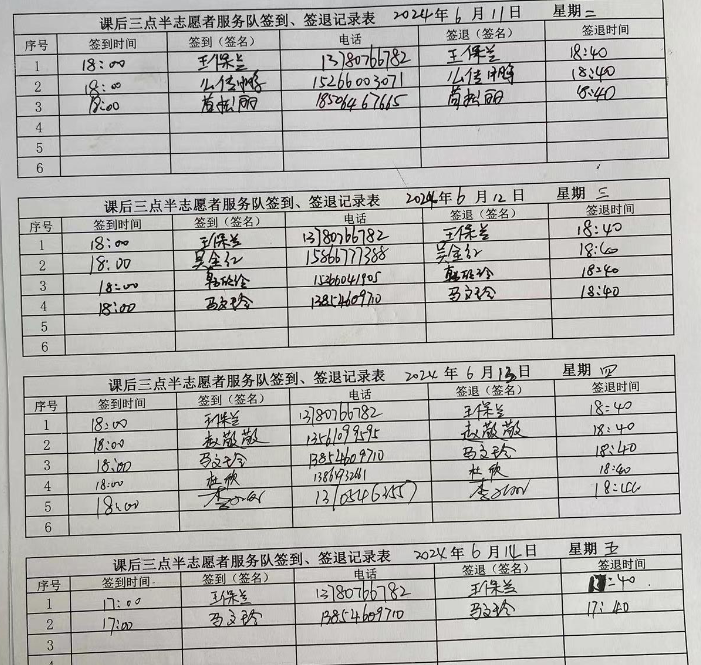 课后三点半志愿者服务队签到、签退记录表 2024年6月11日 星期二
序号 签到时间 签到（签名） 电话 签退（签名） 签退时间
1 18:00 王保兰 13780766782 王保兰 18:40
2 18:00 15266003071 18:40
3 18:00 18506467665 18:40
4
5
6
课后三点半志愿者服务队签到、签退记录表 2024年6月12日 星期三
序号 签到时间 签到（签名） 电话 签退（签名） 签退时间
1 18:00 王保兰 13780766782 王保兰 18:40
2 18:00 吴金红 15866777388 吴金红 18:40
3 18:00 15266041905 18:40
4 18:00 马文玲 13854609710 马文玲 18:40
5
6
课后三点半志愿者服务队签到、签退记录表 2024年6月13日 星期四
序号 签到时间 签到（签名） 电话 签退（签名） 签退时间
1 18:00 王保兰 13780766782 王保兰 18:40
2 18:00 赵敬敬 13561099595 赵敬敬 18:40
3 18:00 马文玲 13854609710 马文玲 18:40
4 18:00 杜欣 杜欣 18:40
5 18:00 18:40
6
课后三点半志愿者服务队签到、签退记录表 2024年6月14日 星期五
序号 签到时间 签到（签名） 电话 签退（签名） 签退时间
1 17:00 王保兰 13780766782 王保兰 :40
2 17:00 马文玲 13854609710 马文玲 17:40
3